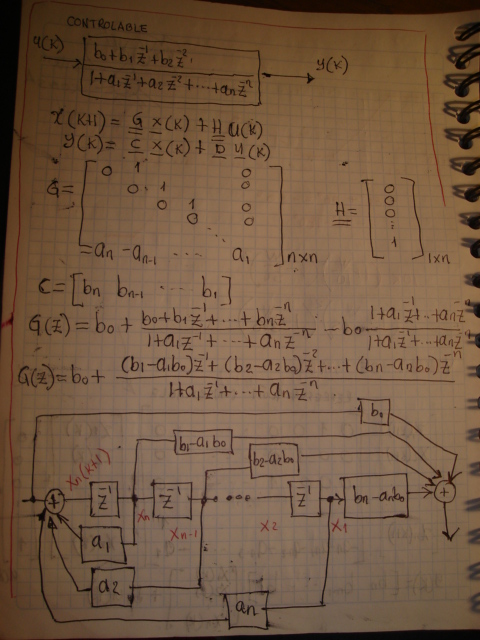 CONTROLABLE
u(k) b₀+b₁z⁻¹+b₂z⁻²· y(k)
1+a₁z⁻¹+a₂z⁻²+⋯+aₙz⁻ⁿ
x(k+1) = G x(k) + H u(k)
y(k) = C x(k) + D u(k)
G= [ 0 1 0
0 1 0
0 1 0
0 ⋱ 0
=aₙ -aₙ₋₁ ⋯ a₁ ] n×n
H= [ 0
0
0
⋮
1 ] 1×n
C = [bₙ bₙ₋₁ ⋯ b₁]
G(z) = b₀ + (b₀+b₁z⁻¹+⋯+bₙz⁻ⁿ)/(1+a₁z⁻¹+⋯+aₙz⁻ⁿ) - b₀ (1+a₁z⁻¹+⋯+aₙz⁻ⁿ)/(1+a₁z⁻¹+⋯+aₙz⁻ⁿ)
G(z) = b₀ + ((b₁-a₁b₀)z⁻¹+(b₂-a₂b₀)z⁻²+⋯+(bₙ-aₙb₀)z⁻ⁿ)/(1+a₁z⁻¹+⋯+aₙz⁻ⁿ)
b₀
b₁-a₁b₀
b₂-a₂b₀
xₙ(k+1)
+ z⁻¹ z⁻¹ ⋯ z⁻¹ bₙ-aₙb₀ +
xₙ xₙ₋₁ x₂ x₁
a₁
a₂
aₙ